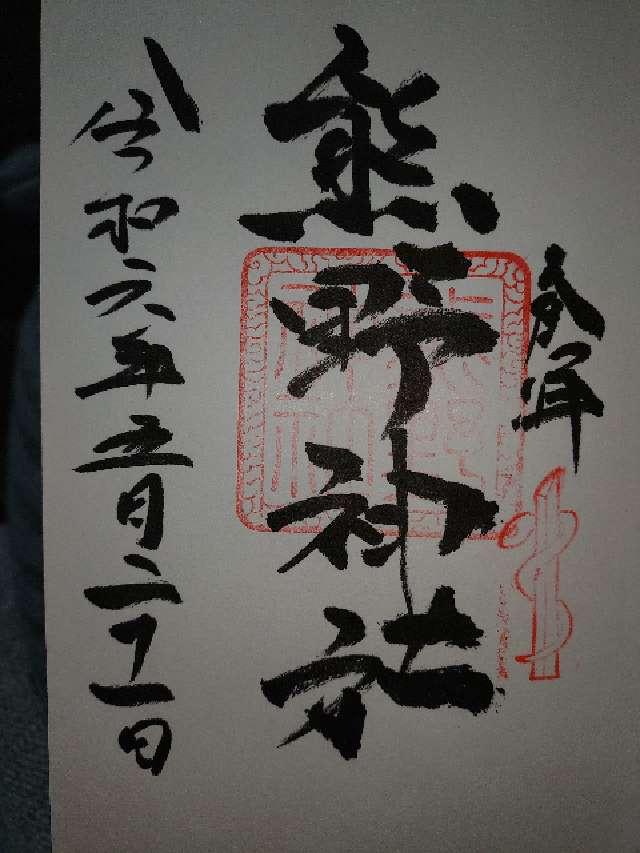 奉拝
熊野神社
令和六年五月二十一日